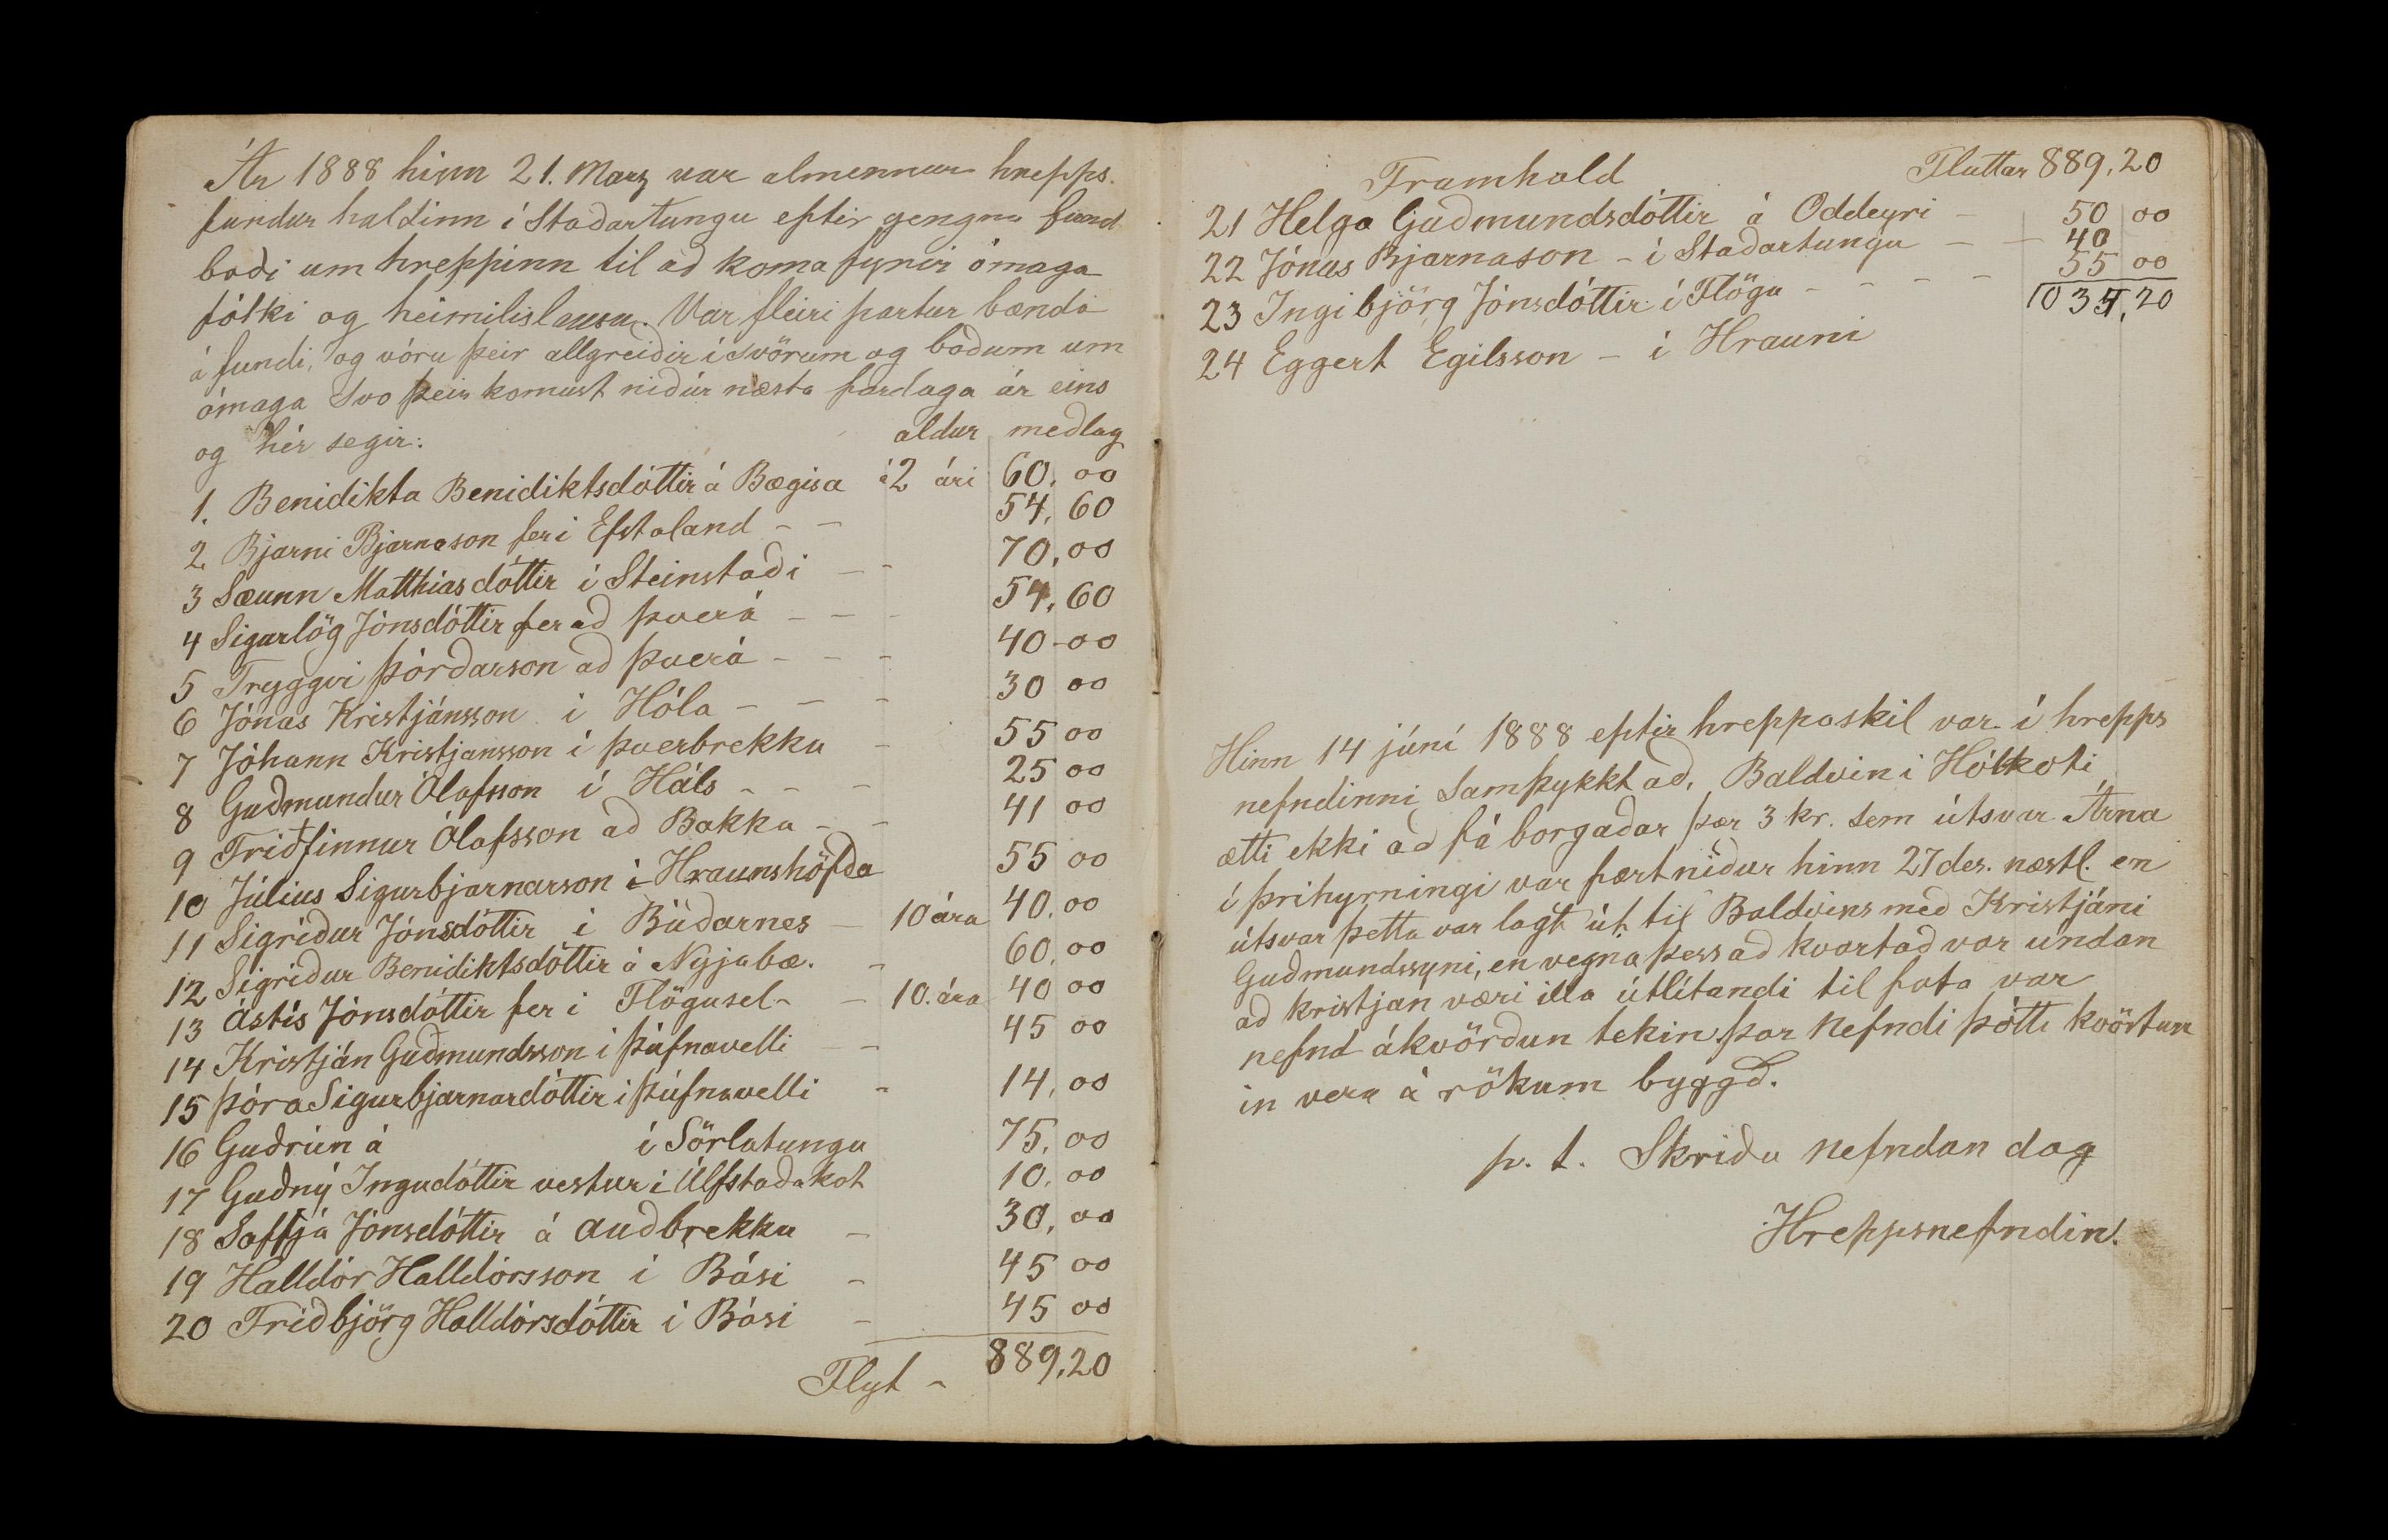 Ár 1888 hinn 21. Marz var almennur hrepps.
fundur haldinn í Staðartungu eftir gengnu fund
boði um hreppinn til að koma fyrir ómaga
fólki og heimilislausu. Var fleiri partur bænda
á fundi, og vóru þeir allgreiðir í svörum og boðum um
ómaga svo þeir komust niður næsta fardaga ár eins
og hér segir:
aldur meðlag
1. Benidikta Benidiktsdóttir á Bægisa á 2 ári 60,00
2 Bjarni Bjarnason fer í Efstaland - - 54,60
3 Sæunn Matthíasdóttir í Steinstaði - - 70,00
4 Sigurlög Jónsdóttir fer að þverá - - - 54,60
5 Tryggvi þórðarson að þverá - - - 40-00
6 Jónas Kristjánsson í Hóla - - - 30 00
7 Jóhann Kristjansson í þverbrekku - 55 00
8 Guðmundur Ólafsson í Háls - - - 25 00
9 Friðfinnur Ólafsson að Bakka - - 41 00
10 Júlíus Sigurbjarnarson í Hraunshöfða 55 00
11 Sigríður Jónsdóttir í Búðarnes - 10 ára 40,00
12 Sigríður Benidiktsdóttir á Nyjabæ. - 60,00
13 Ástís Jónsdóttir fer í Flögusel - - 10. ára 40 00
14 Kristján Guðmundsson í þúfnavelli - - 45 00
15 þóra Sigurbjarnardóttir í þúfnavelli - 14,00
16 Guðrún á í Sörlatungu 75,00
17 Guðný Ingudóttir vestur í Úlfstaðakot 10,00
18 Soffja Jónsdóttir á auðbrekku - 30,00
19 Halldór Halldórsson í Bási - 45 00
20 Friðbjörg Halldórsdóttir í Bási - 45 00
Flyt - 889,20
Framhald Fluttar 889,20
21 Helga Guðmundsdóttir á Oddeyri - 50 00
22 Jónas Bjarnason - í Staðartungu - - 40
23 Ingibjörg Jónsdóttir í Flögu - - - - 55 00
24 Eggert Egilsson - í Hrauni
Hinn 14 júní 1888 eftir hreppaskil var í hrepps
nefndinni samþykkt að, Baldvin í Hólkoti
ætti ekki að fá borgaðar þær 3 kr. sem útsvar Árna
í þrihyrningi var fært niður hinn 27 des. næstl. en
útsvar þetta var lagt út til Baldvins með Kristjáni
Guðmundssyni, en vegna þess að kvartað var undan
að kristjan væri illa útlítandi til fata var
nefnd ákvörðun tekin þar nefndi þótti kvörtun
in vera á rökum byggð.
p. t. Skriðu nefndan dag
Hreppsnefndin.